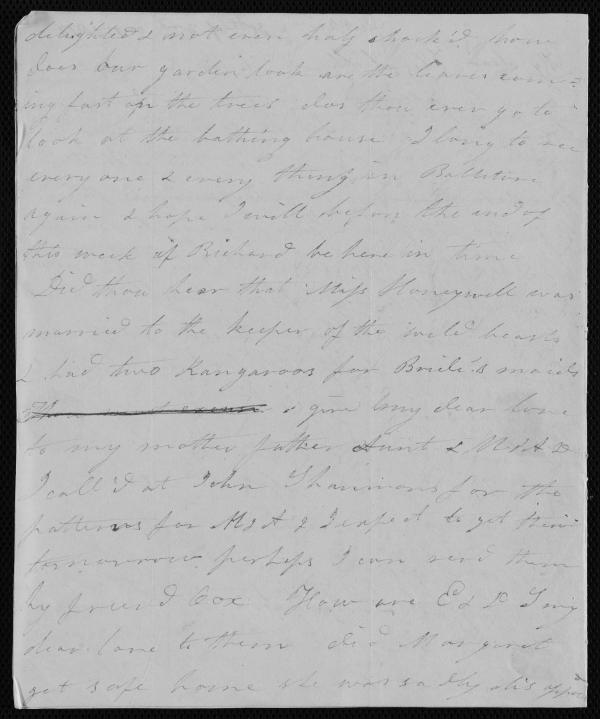 delighted & not even half shock'd how
does our garden look are the leaves com=
ing fast on the trees dos thou ever go to
look at the bathing house I long to see
every one & every thing in Balitore
again & hope I will before the end of
this week if Richard be here in time
Did thou hear that Miss Honeywell was
married to the keeper of the wild beasts
& had two Kangaroos for Bride's maids
give my dear love
to my mother father Aunt &
I call'd at John Shannons for the
patterns for M & A & I expect to get them
tomorrow perhaps I can send them
by friend Cox How are E & my
dear love to them did Margaret
get safe home she was sadly